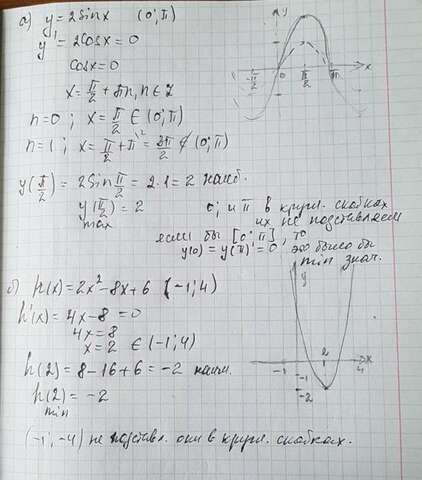 а) y = 2sinx (0; π)
y' = 2cosx = 0
cosx = 0
x = π/2 + πn, n ∈ Z
n=0; x = π/2 ∈ (0; π)
n=1; x = π/2 + π^{\2} = 3π/2 ∉ (0; π)
y(π/2) = 2Sin π/2 = 2·1 = 2 наиб.
y(π/2) = 2
max
0; и π в кругл. скобках
их не подставляем
если бы [0; π], то
y(0) = y(π) = 0 это было бы
min знач.
y
x
-π/2
0
π/2
π
б) h(x) = 2x² - 8x + 6 (-1; 4)
h'(x) = 4x - 8 = 0
4x = 8
x = 2 ∈ (-1; 4)
h(2) = 8 - 16 + 6 = -2 наим.
h(2) = -2
min
y
x
-1
2
4
-1
-2
(-1; -4) не подставл. они в кругл. скобках.